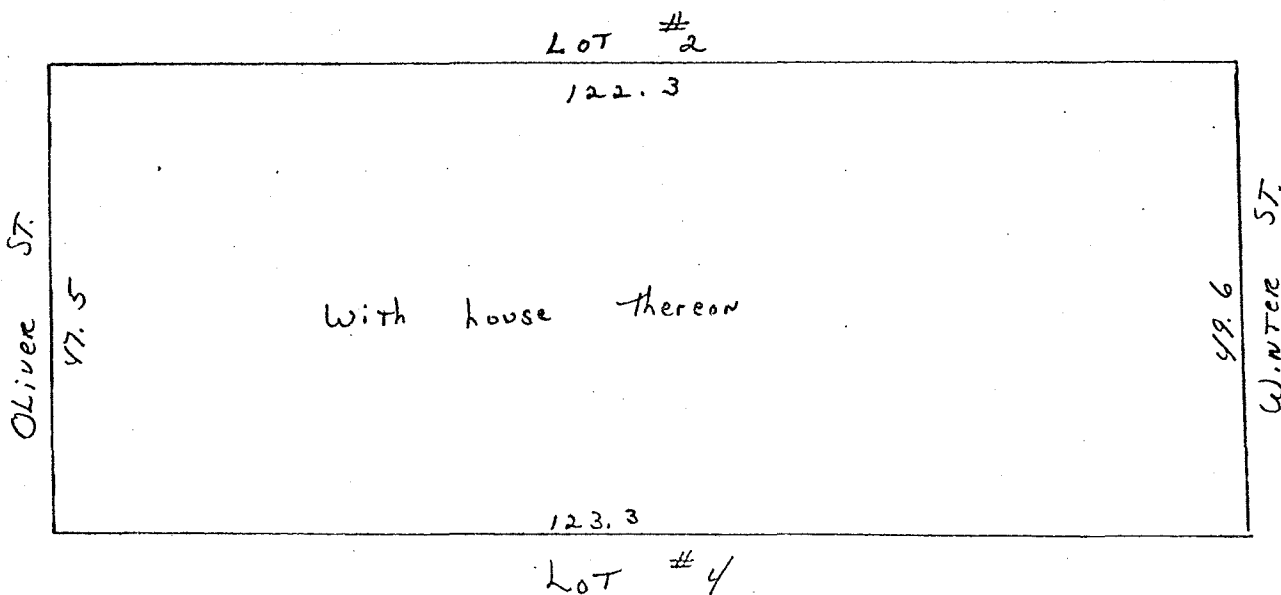 LOT #2
122.3
OLiver ST.
47.5
With house thereon
49.6
WiNTer ST.
123.3
LOT #4